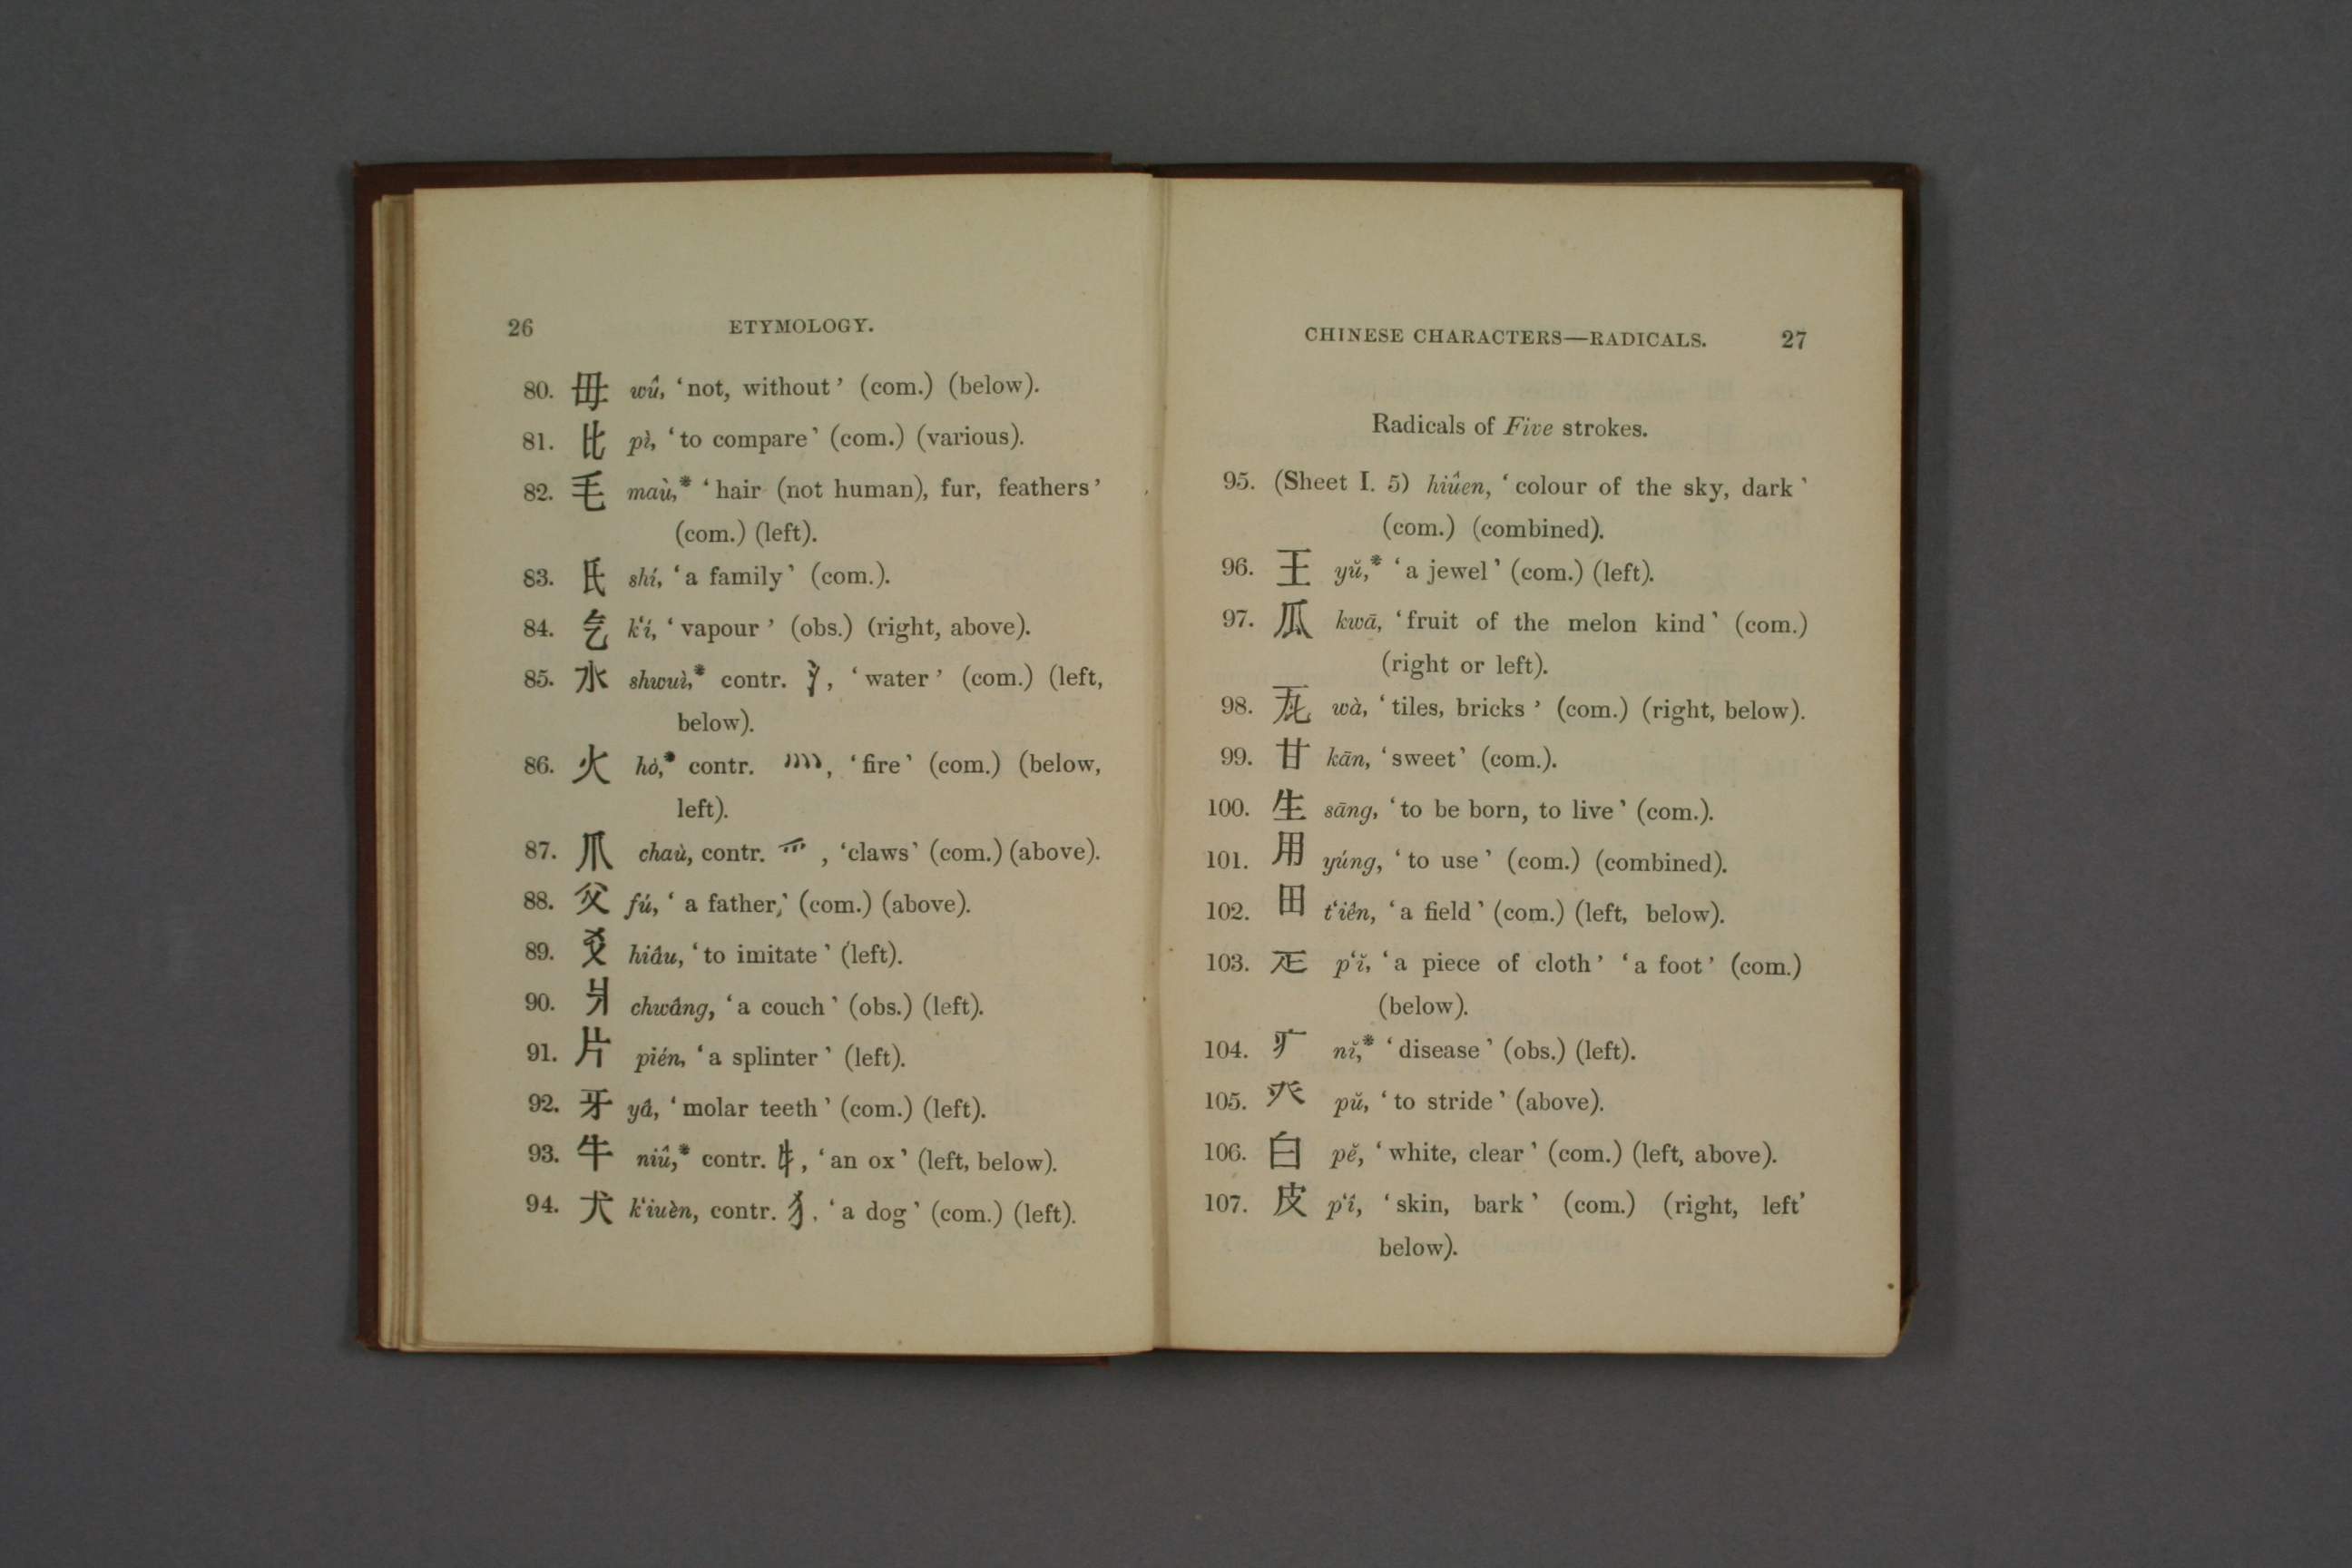 26 ETYMOLOGY.
80. 毋 wû, ‘not, without’ (com.) (below).
81. 比 pì, ‘to compare’ (com.) (various).
82. 毛 maù,* ‘hair (not human), fur, feathers’
(com.) (left).
83. 氏 shí, ‘a family’ (com.).
84. 气 k‘í, ‘vapour’ (obs.) (right, above).
85. 水 shwuì,* contr. 氵, ‘water’ (com.) (left,
below).
86. 火 hò,* contr. 灬, ‘fire’ (com.) (below,
left).
87. 爪 chaù, contr. 爫, ‘claws’ (com.) (above).
88. 父 fú, ‘a father,’ (com.) (above).
89. 爻 hiâu, ‘to imitate’ (left).
90. 爿 chwâng, ‘a couch’ (obs.) (left).
91. 片 pién, ‘a splinter’ (left).
92. 牙 yâ, ‘molar teeth’ (com.) (left).
93. 牛 niû,* contr. 牜, ‘an ox’ (left, below).
94. 犬 k‘iuèn, contr. 犭, ‘a dog’ (com.) (left).
CHINESE CHARACTERS—RADICALS. 27
Radicals of Five strokes.
95. (Sheet I. 5) hiûen, ‘colour of the sky, dark’
(com.) (combined).
96. 王 yŭ,* ‘a jewel’ (com.) (left).
97. 瓜 kwā, ‘fruit of the melon kind’ (com.)
(right or left).
98. 瓦 wà, ‘tiles, bricks’ (com.) (right, below).
99. 甘 kān, ‘sweet’ (com.).
100. 生 sāng, ‘to be born, to live’ (com.).
101. 用 yúng, ‘to use’ (com.) (combined).
102. 田 t‘iên, ‘a field’ (com.) (left, below).
103. 疋 p‘ĭ, ‘a piece of cloth’ ‘a foot’ (com.)
(below).
104. 疒 nĭ,* ‘disease’ (obs.) (left).
105. 癶 pŭ, ‘to stride’ (above).
106. 白 pĕ, ‘white, clear’ (com.) (left, above).
107. 皮 p‘î, ‘skin, bark’ (com.) (right, left’
below).